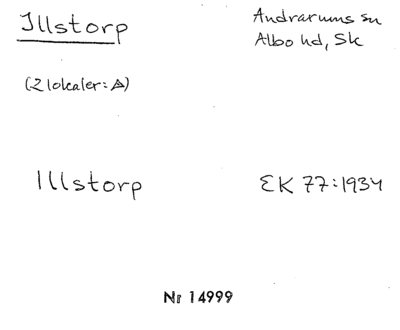 Illstorp
Andrarums sn
Albo hd, Sk
(2 lokaler: A)
Illstorp
EK 77:1934
Nr 14999